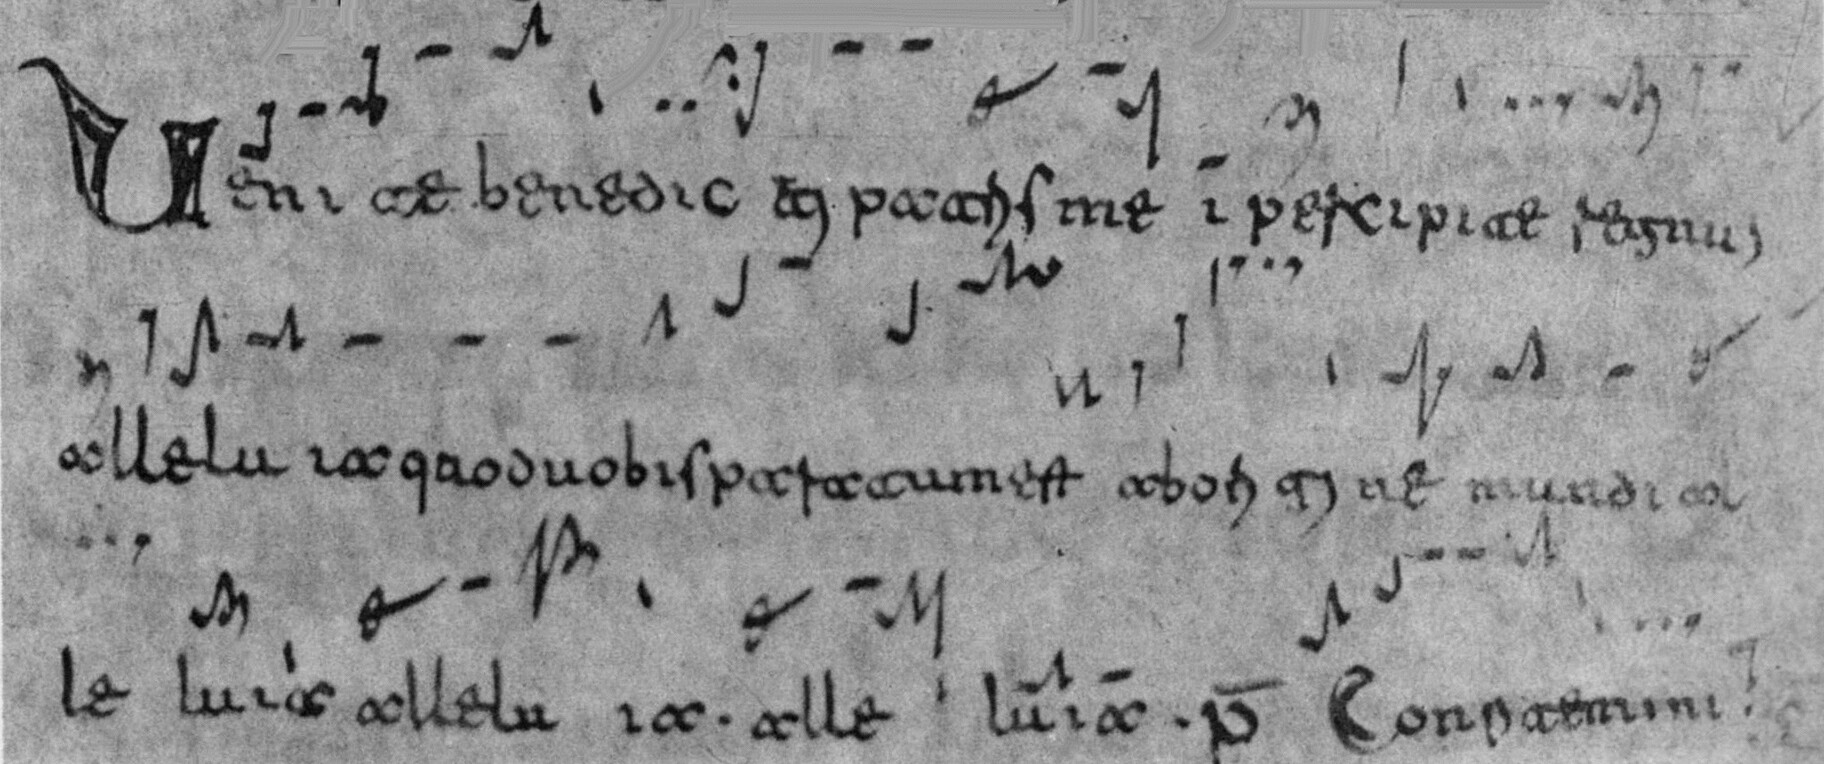 Ueni te benedic ti patris me i percipite regnu
allelu ia quod uobis paratum est ab ori gi ne mundi al
le luia allelu ia. alle luia. p̄